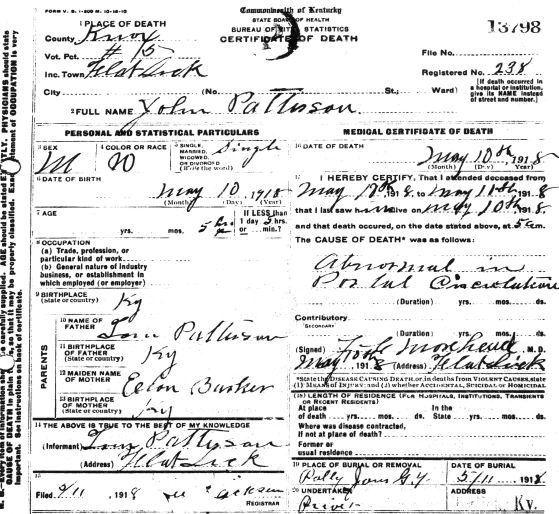 FORM V. S. 1-
Commonwealth of Kentucky
STATE BOARD OF HEALTH
BUREAU OF VITAL STATISTICS
CERTIFICATE OF DEATH
13798
1 PLACE OF DEATH
County Knox
Vot. Pct. # 15
Inc. Town Flat Lick
City (No. St.; Ward)
File No.
Registered No. 238
[If death occurred in a hospital or institution, give its NAME instead of street and number.]
2 FULL NAME John Pattisson
PERSONAL AND STATISTICAL PARTICULARS
3 SEX M
4 COLOR OR RACE W
5 SINGLE, MARRIED, WIDOWED, OR DIVORCED (Write the word) Single
6 DATE OF BIRTH
May 10 1918
(Month) (Day) (Year)
7 AGE
yrs. mos. 5 hrs
If LESS than 1 day 5 hrs. or min.?
8 OCCUPATION
(a) Trade, profession, or particular kind of work
(b) General nature of industry business, or establishment in which employed (or employer)
9 BIRTHPLACE (State or country) Ky
PARENTS
10 NAME OF FATHER Tom Pattisson
11 BIRTHPLACE OF FATHER (State or country) Ky
12 MAIDEN NAME OF MOTHER Barker
13 BIRTHPLACE OF MOTHER (State or country) Ky
14 THE ABOVE IS TRUE TO THE BEST OF MY KNOWLEDGE
(Informant) Tom Pattisson
(Address) Flat Lick
15
Filed 5/11 1918
REGISTRAR
MEDICAL CERTIFICATE OF DEATH
16 DATE OF DEATH
May 10th 1918
(Month) (Day) (Year)
17 I HEREBY CERTIFY, That I attended deceased from
May 10th, 1918, to May 11th, 1918
that I last saw him alive on May 10th, 1918
and that death occured, on the date stated above, at 5 a.m.
The CAUSE OF DEATH* was as follows:
Abnormal in
Postal Circulation
(Duration) yrs. mos. ds.
Contributory
SECONDARY
(Duration) yrs. mos. ds.
(Signed) Morehead M. D.
May 1918 (Address) Flat Lick
*State the DISEASE CAUSING DEATH, or, in deaths from VIOLENT CAUSES, state (1) MEANS OF INJURY; and (2) whether ACCIDENTAL, SUICIDAL or HOMICIDAL.
18 LENGTH OF RESIDENCE (FOR HOSPITALS, INSTITUTIONS, TRANSIENTS OR RECENT RESIDENTS)
At place of death yrs. mos. ds. In the State yrs. mos. ds.
Where was disease contracted, if not at place of death?
Former or usual residence
19 PLACE OF BURIAL OR REMOVAL
DATE OF BURIAL
5/11 1918
20 UNDERTAKER
ADDRESS
Ky.